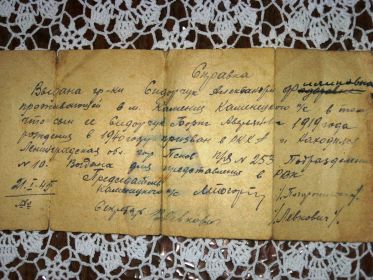 Справка
Выдана гр-ки Сидорчук Александри
проживающей в м. Каменец Каменецкого с/с в том
что сын ее Сидорчук Борис 1919 года
рождения в 1940 году призван в РККА и находится
Ленинградская обл. гор. Псков П/Я № 253 Подразделение
№ 10. Выдана для представления в РАЙ
Председатель
Каменецкого с/с
21.I-41г. Секретарь
/Левкович/